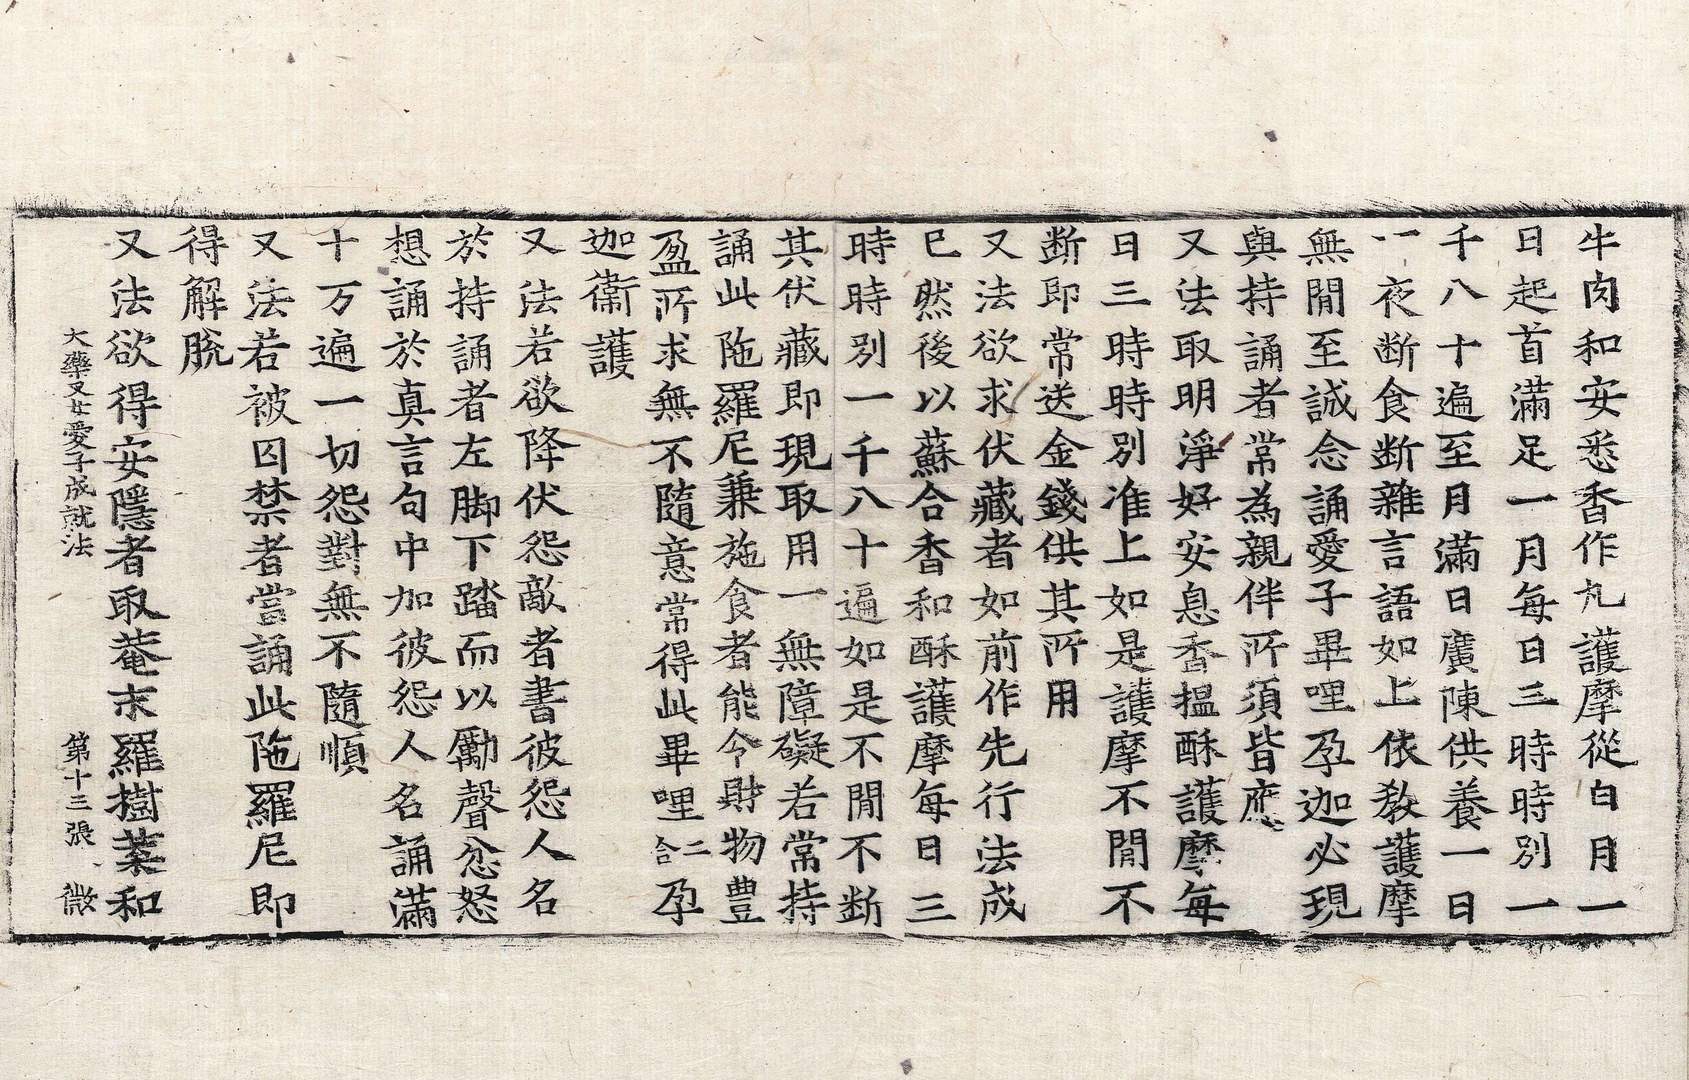 牛肉和安悉香作丸護摩從白月一
日起首滿足一月每日三時時別一
千八十遍至月滿日廣陳供養一日
一夜断食断雜言語如上依教護摩
無閒至誠念誦愛子畢哩孕迦必現
與持誦者常為親伴所須皆應
又法取明淨好安息香搵酥護摩每
日三時時別准上如是護摩不閒不
断即常送金錢供其所用
又法欲求伏藏者如前作先行法成
已然後以蘇合香和酥護摩每日三
時時別一千八十遍如是不閒不断
其伏藏即現取用一無障礙若常持
誦此陁羅尼兼施食者能令財物豊
盈所求無不隨意常得此畢哩二合孕
迦衞護
又法若欲降伏怨敵者書彼怨人名
於持誦者左脚下踏而以勵聲忿怒
想誦於真言句中加彼怨人名誦滿
十万遍一切怨對無不隨順
又法若被囚禁者當誦此陁羅尼即
得解脫
又法欲得安隱者取菴末羅樹葉和
大藥叉女愛子成就法 第十三張 微